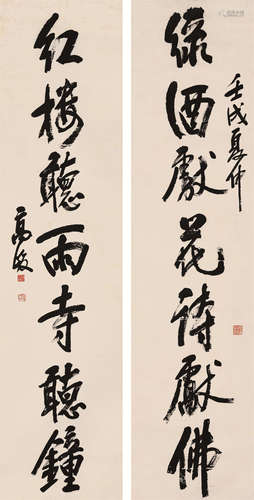 綠酒獻花詩獻佛
壬戌夏仲
紅楼聽雨寺聽鐘
高